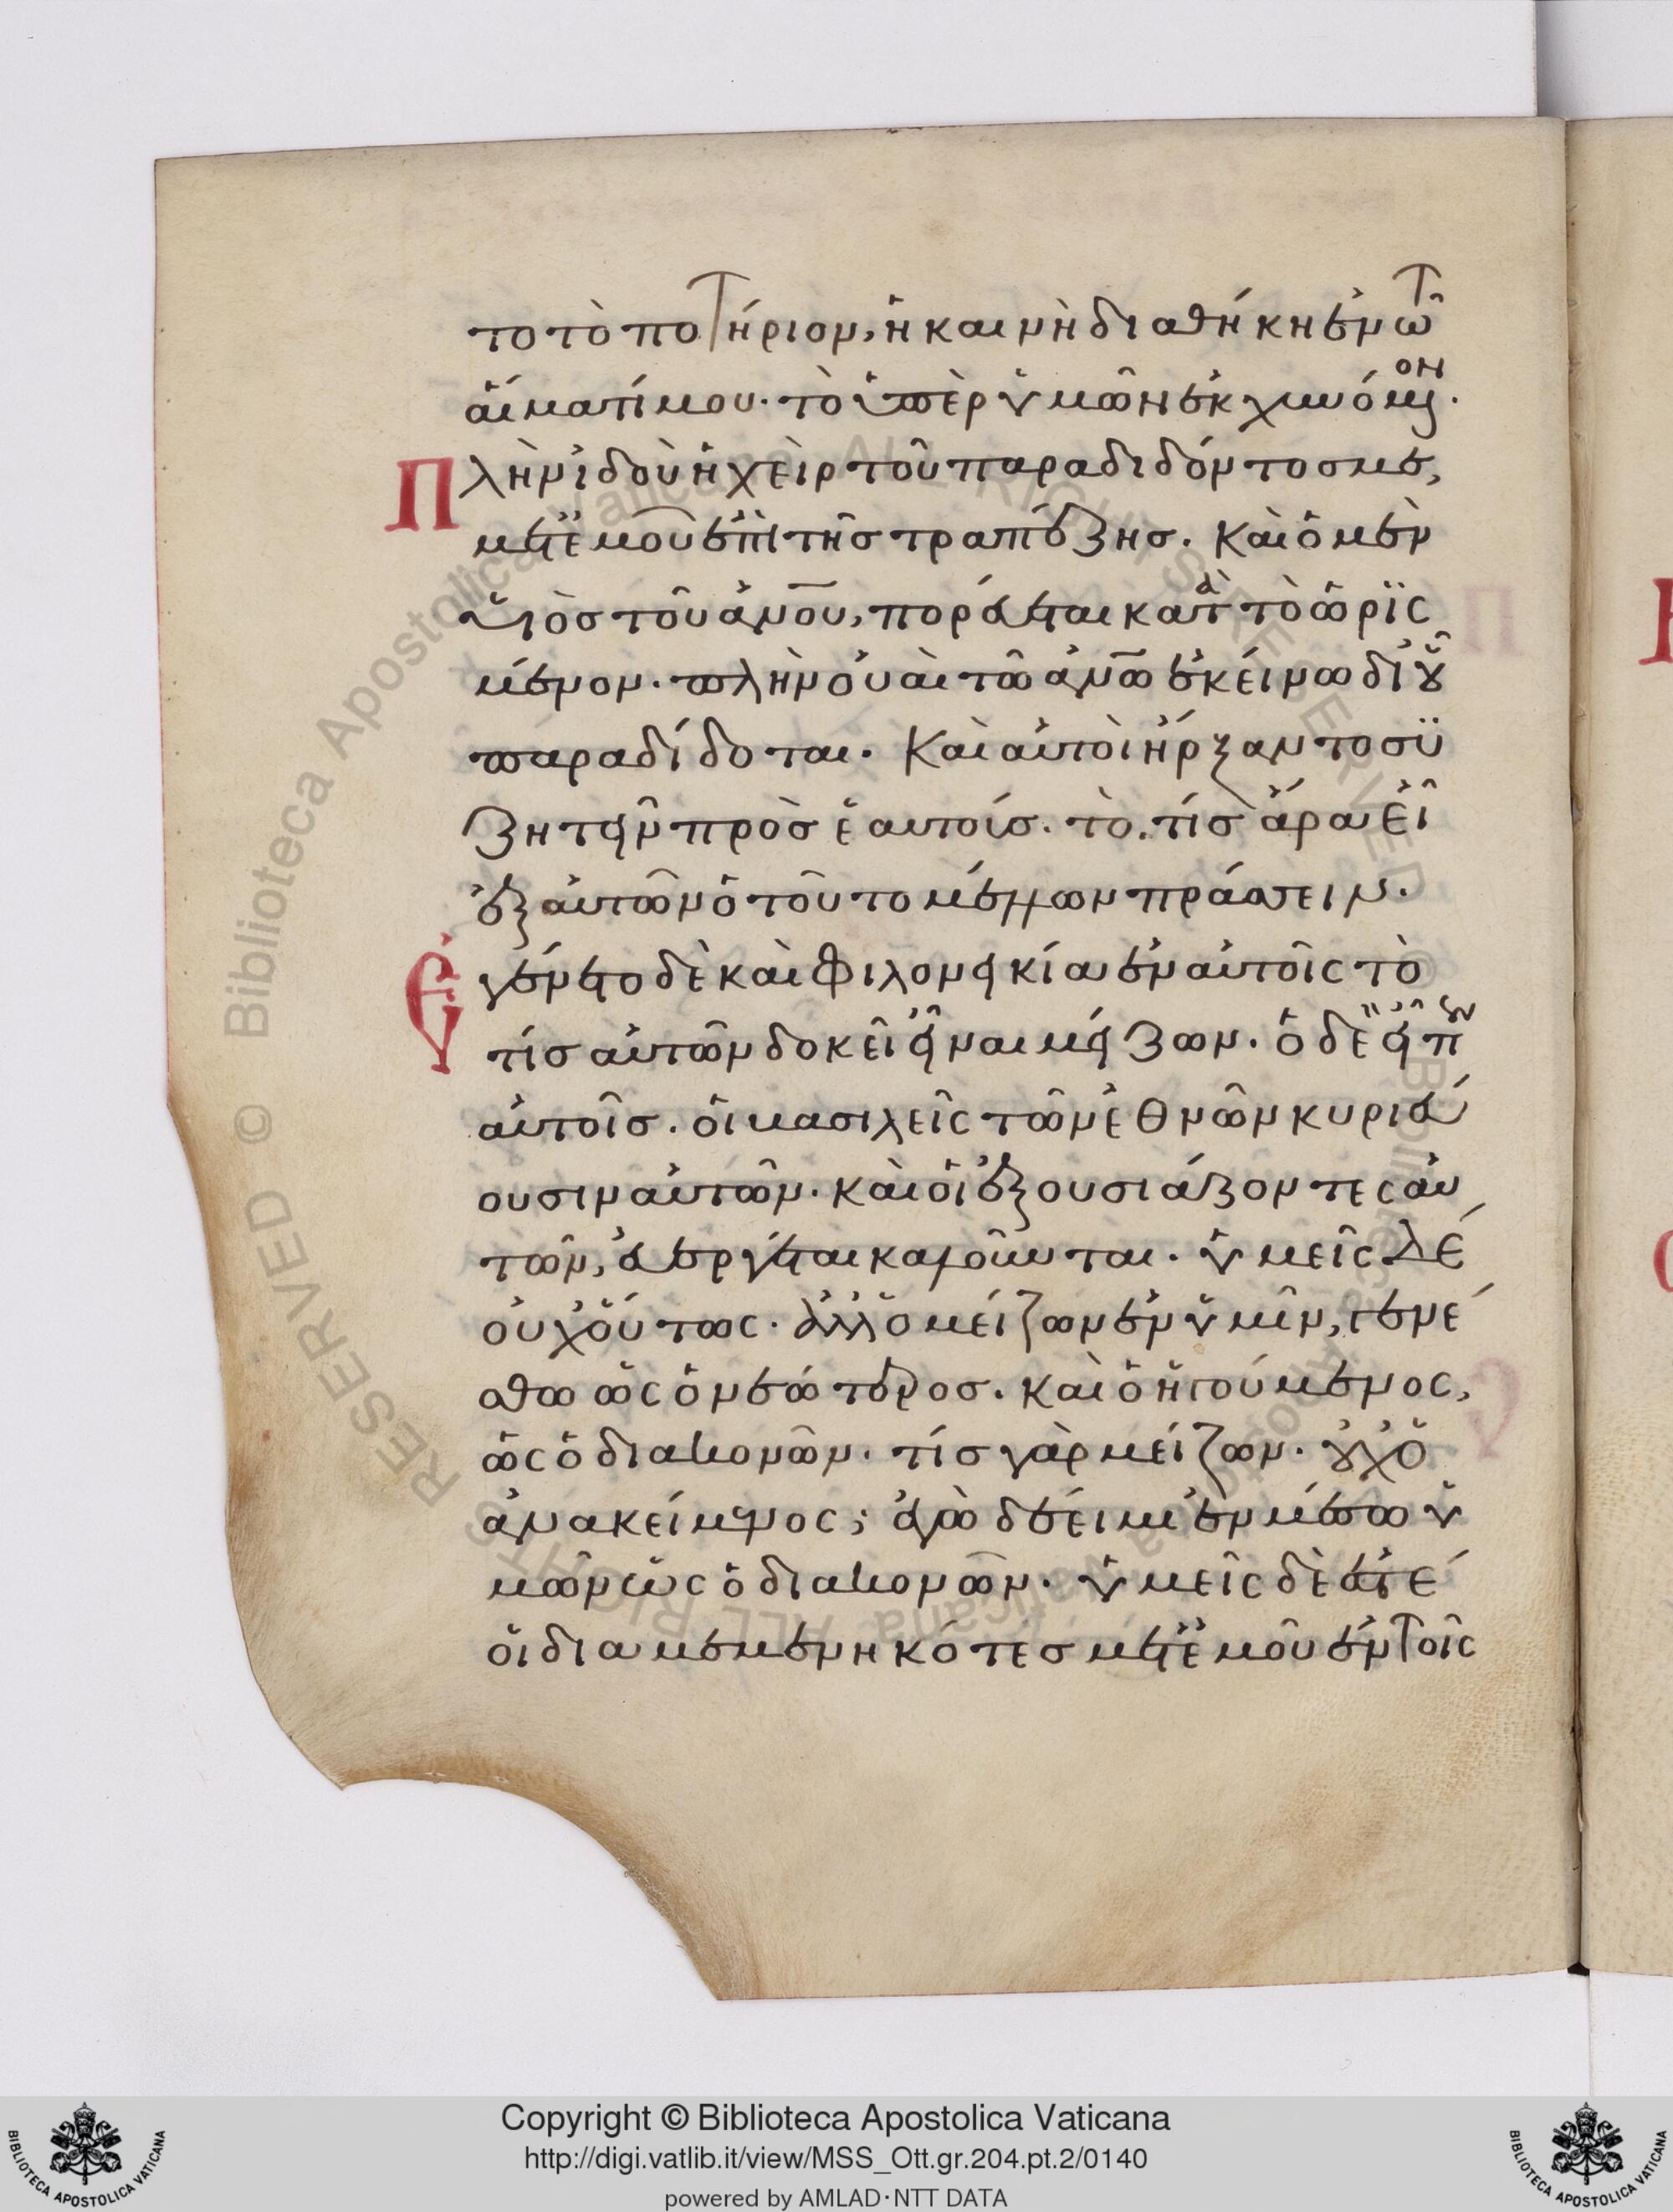 το τὸ ποτήριον, ἡ καινὴ διαθήκη ἐν τῶ
αἵματί μου. τὸ ὑπὲρ ὑμῶν ἐκχυνόμενον.
Πλὴν ἰδοὺ ἡ χεὶρ τοῦ παραδιδόντοσ με,
μετ' ἐμοῦ ἐπὶ τῆσ τραπέζησ. Καὶ ὁ μὲν
υἱὸσ τοῦ ἀνου, πορεύεται κατὰ τὸ ὡρισ
μένον. πλὴν οὐαὶ τῶ ἀνω ἐκείνω δι' οὗ
παραδίδοται. Καὶ αὐτοὶ ἤρξαντο συ
ζητεῖν πρὸσ ἑαυτούσ. τὸ. τίσ ἄρα εἴη
ἐξ αὐτῶν ὁ τοῦτο μέλλων πράσσειν.
Ἐγένετο δὲ καὶ φιλονεικία ἐν αὐτοῖς τὸ
τίσ αὐτῶν δοκεῖ εἶναι μείζων. ὁ δὲ εἶπεν
αὐτοῖσ. οἱ βασιλεῖς τῶν ἐθνῶν κυριεύ
ουσιν αὐτῶν. καὶ οἱ ἐξουσιάζοντες αὐ
τῶν, εὐεργέται καλοῦνται. ὑμεῖς δὲ
οὐχ οὕτως. ἀλλ' ὁ μείζων ἐν ὑμῖν, γενέ
σθω ὡς ὁ νεώτεροσ. καὶ ὁ ἡγούμενος,
ὡς ὁ διακονῶν. τίσ γὰρ μείζων. οὐχ ὁ
ἀνακείμενος; ἐγὼ δέ εἰμι ἐν μέσω ὑ
μῶν ὡς ὁ διακονῶν. ὑμεῖς δὲ ἐστὲ
οἱ διαμεμενηκότεσ μετ' ἐμοῦ ἐν τοῖς
Copyright © Biblioteca Apostolica Vaticana
http://digi.vatlib.it/view/MSS_Ott.gr.204.pt.2/0140
powered by AMLAD·NTT DATA
BIBLIOTECA APOSTOLICA VATICANA
BIBLIOTECA APOSTOLICA VATICANA